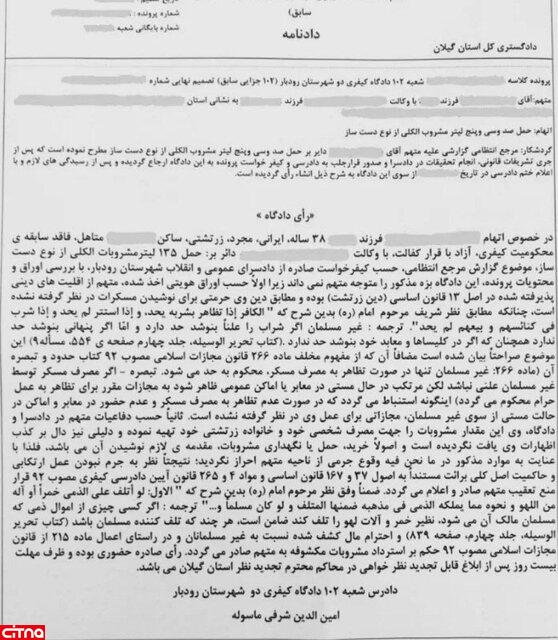 تاریخ تنظیم :
سابق)
شماره پرونده :
دادنامه
شماره بایگانی شعبه :
دادگستری کل استان گیلان
پرونده کلاسه شعبه ۱۰۲ دادگاه کیفری دو شهرستان رودبار (۱۰۲ جزایی سابق) تصمیم نهایی شماره
متهم:آقای فرزند با وکالت فرزند به نشانی استان
اتهام: حمل صد وسی وپنج لیتر مشروب الکلی از نوع دست ساز
گردشکار: مرجع انتظامی گزارشی علیه متهم آقای دایر بر حمل صد وسی وپنج لیتر مشروب الکلی از نوع دست ساز مطرح نموده است که پس از
جری تشریفات قانونی، انجام تحقیقات در دادسرا و صدور قرارجلب به دادرسی و کیفر خواست پرونده به این دادگاه ارجاع گردیده و پس از رسیدگی های لازم و با
اعلام ختم دادرسی در تاریخ از سوی این دادگاه به شرح ذیل انشاء رأی گردیده است.
«رأی دادگاه»
در خصوص اتهام فرزند ۳۸ ساله، ایرانی، مجرد، زرتشتی، ساکن متاهل، فاقد سابقه ی
محکومیت کیفری، آزاد با قرار کفالت، با وکالت دائر بر: حمل ۱۳۵ لیترمشروبات الکلی از نوع دست
ساز، موضوع گزارش مرجع انتظامی، حسب کیفرخواست صادره از دادسرای عمومی و انقلاب شهرستان رودبار، با بررسی اوراق و
محتویات پرونده، این دادگاه بزه مذکور را متوجه متهم نمی داند زیرا اولاً حسب اوراق هویتی اخذ شده، متهم از اقلیت های دینی
پذیرفته شده در اصل ۱۳ قانون اساسی (دین زرتشت) بوده و مطابق دین وی حرمتی برای نوشیدن مسکرات در نظر گرفته نشده
است، چنانکه مطابق نظر شریف مرحوم امام (ره) بدین شرح که " الکافر إذا تظاهر بشربه یحد، و إذا استتر لم یحد و إذا شرب
فی کنائسهم و بیعهم لم یحد". ترجمه : غیر مسلمان اگر شراب را علناً بنوشد حد دارد و امّا اگر پنهانی بنوشد حد
ندارد همچنان که اگر در کلیساها و معابد خود بنوشد حد ندارد .(کتاب تحریر الوسیله، جلد چهارم صفحه ی ۵۵۴، مسأله۹) این
موضوع صراحتاً بیان شده است مضافاً آن که از مفهوم مخلف ماده ۲۶۶ قانون مجازات اسلامی مصوب ۹۲ کتاب حدود و تبصره
آن (ماده ۲۶۶: غیر مسلمان تنها در صورت تظاهر به مصرف مسکر، محکوم به حد می شود. تبصره - اگر مصرف مسکر توسط
غیر مسلمان علنی نباشد لکن مرتکب در حال مستی در معابر یا اماکن عمومی ظاهر شود به مجازات مقرر برای تظاهر به عمل
حرام محکوم می گردد) اینگونه استنباط می گردد که در صورت عدم تظاهر به مصرف مسکر و عدم حضور در معابر و اماکن در
حالت مستی از سوی غیر مسلمان، مجازاتی برای عمل وی در نظر گرفته نشده است. ثانیاً حسب دفاعیات متهم در دادسرا و
دادگاه، وی این مقدار مشروبات را جهت مصرف شخصی خود و خانواده زرتشتی خود تهیه نموده و دلیلی نیز دال بر کذب
اظهارات وی یافت نگردیده است و اصولاً خرید، حمل یا نگهداری مشروبات، مقدمه ی لازم نوشیدن آن می باشد. فلذا با
عنایت به موارد مذکور در ما نحن فیه وقوع جرمی از ناحیه متهم احراز نگردید؛ نتیجتاً نظر به جرم نبودن عمل ارتکابی
و حاکمیت اصل کلی برائت مستنداً به اصول ۳۷ و ۱۶۷ قانون اساسی و مواد ۴ و ۲۶۵ قانون آیین دادرسی کیفری مصوب ۹۲ قرار
منع تعقیب متهم صادر و اعلام می گردد. ضمناً وفق نظر مرحوم امام (ره) بدین شرح که " الاول: لو أتلف علی الذمی خمراً أو آله
من اللهو و نحوه مما یملکه الذمی فی مذهبه ضمنها المتلف و لو کان مسلماً و..." ترجمه : اگر کسی چیزی از اموال ذمی که
مسلمان مالک آن می شود، نظیر خمر و آلات لهو را تلف کند ضامن است، هر چند که تلف کننده مسلمان باشد (کتاب تحریر
الوسیله، جلد چهارم، صفحه ۸۳۹) و احترام مال کشف شده نسبت به غیر مسلمانان و در راستای اعمال ماده ۲۱۵ از قانون
مجازات اسلامی مصوب ۹۲ حکم بر استرداد مشروبات مکشوفه به متهم صادر می گردد. رأی صادره حضوری بوده و ظرف مهلت
بیست روز پس از ابلاغ قابل تجدید نظر خواهی در محاکم محترم تجدید نظر استان گیلان می باشد.
دادرس شعبه ۱۰۲ دادگاه کیفری دو شهرستان رودبار
امین الدین شرفی ماسوله
citna